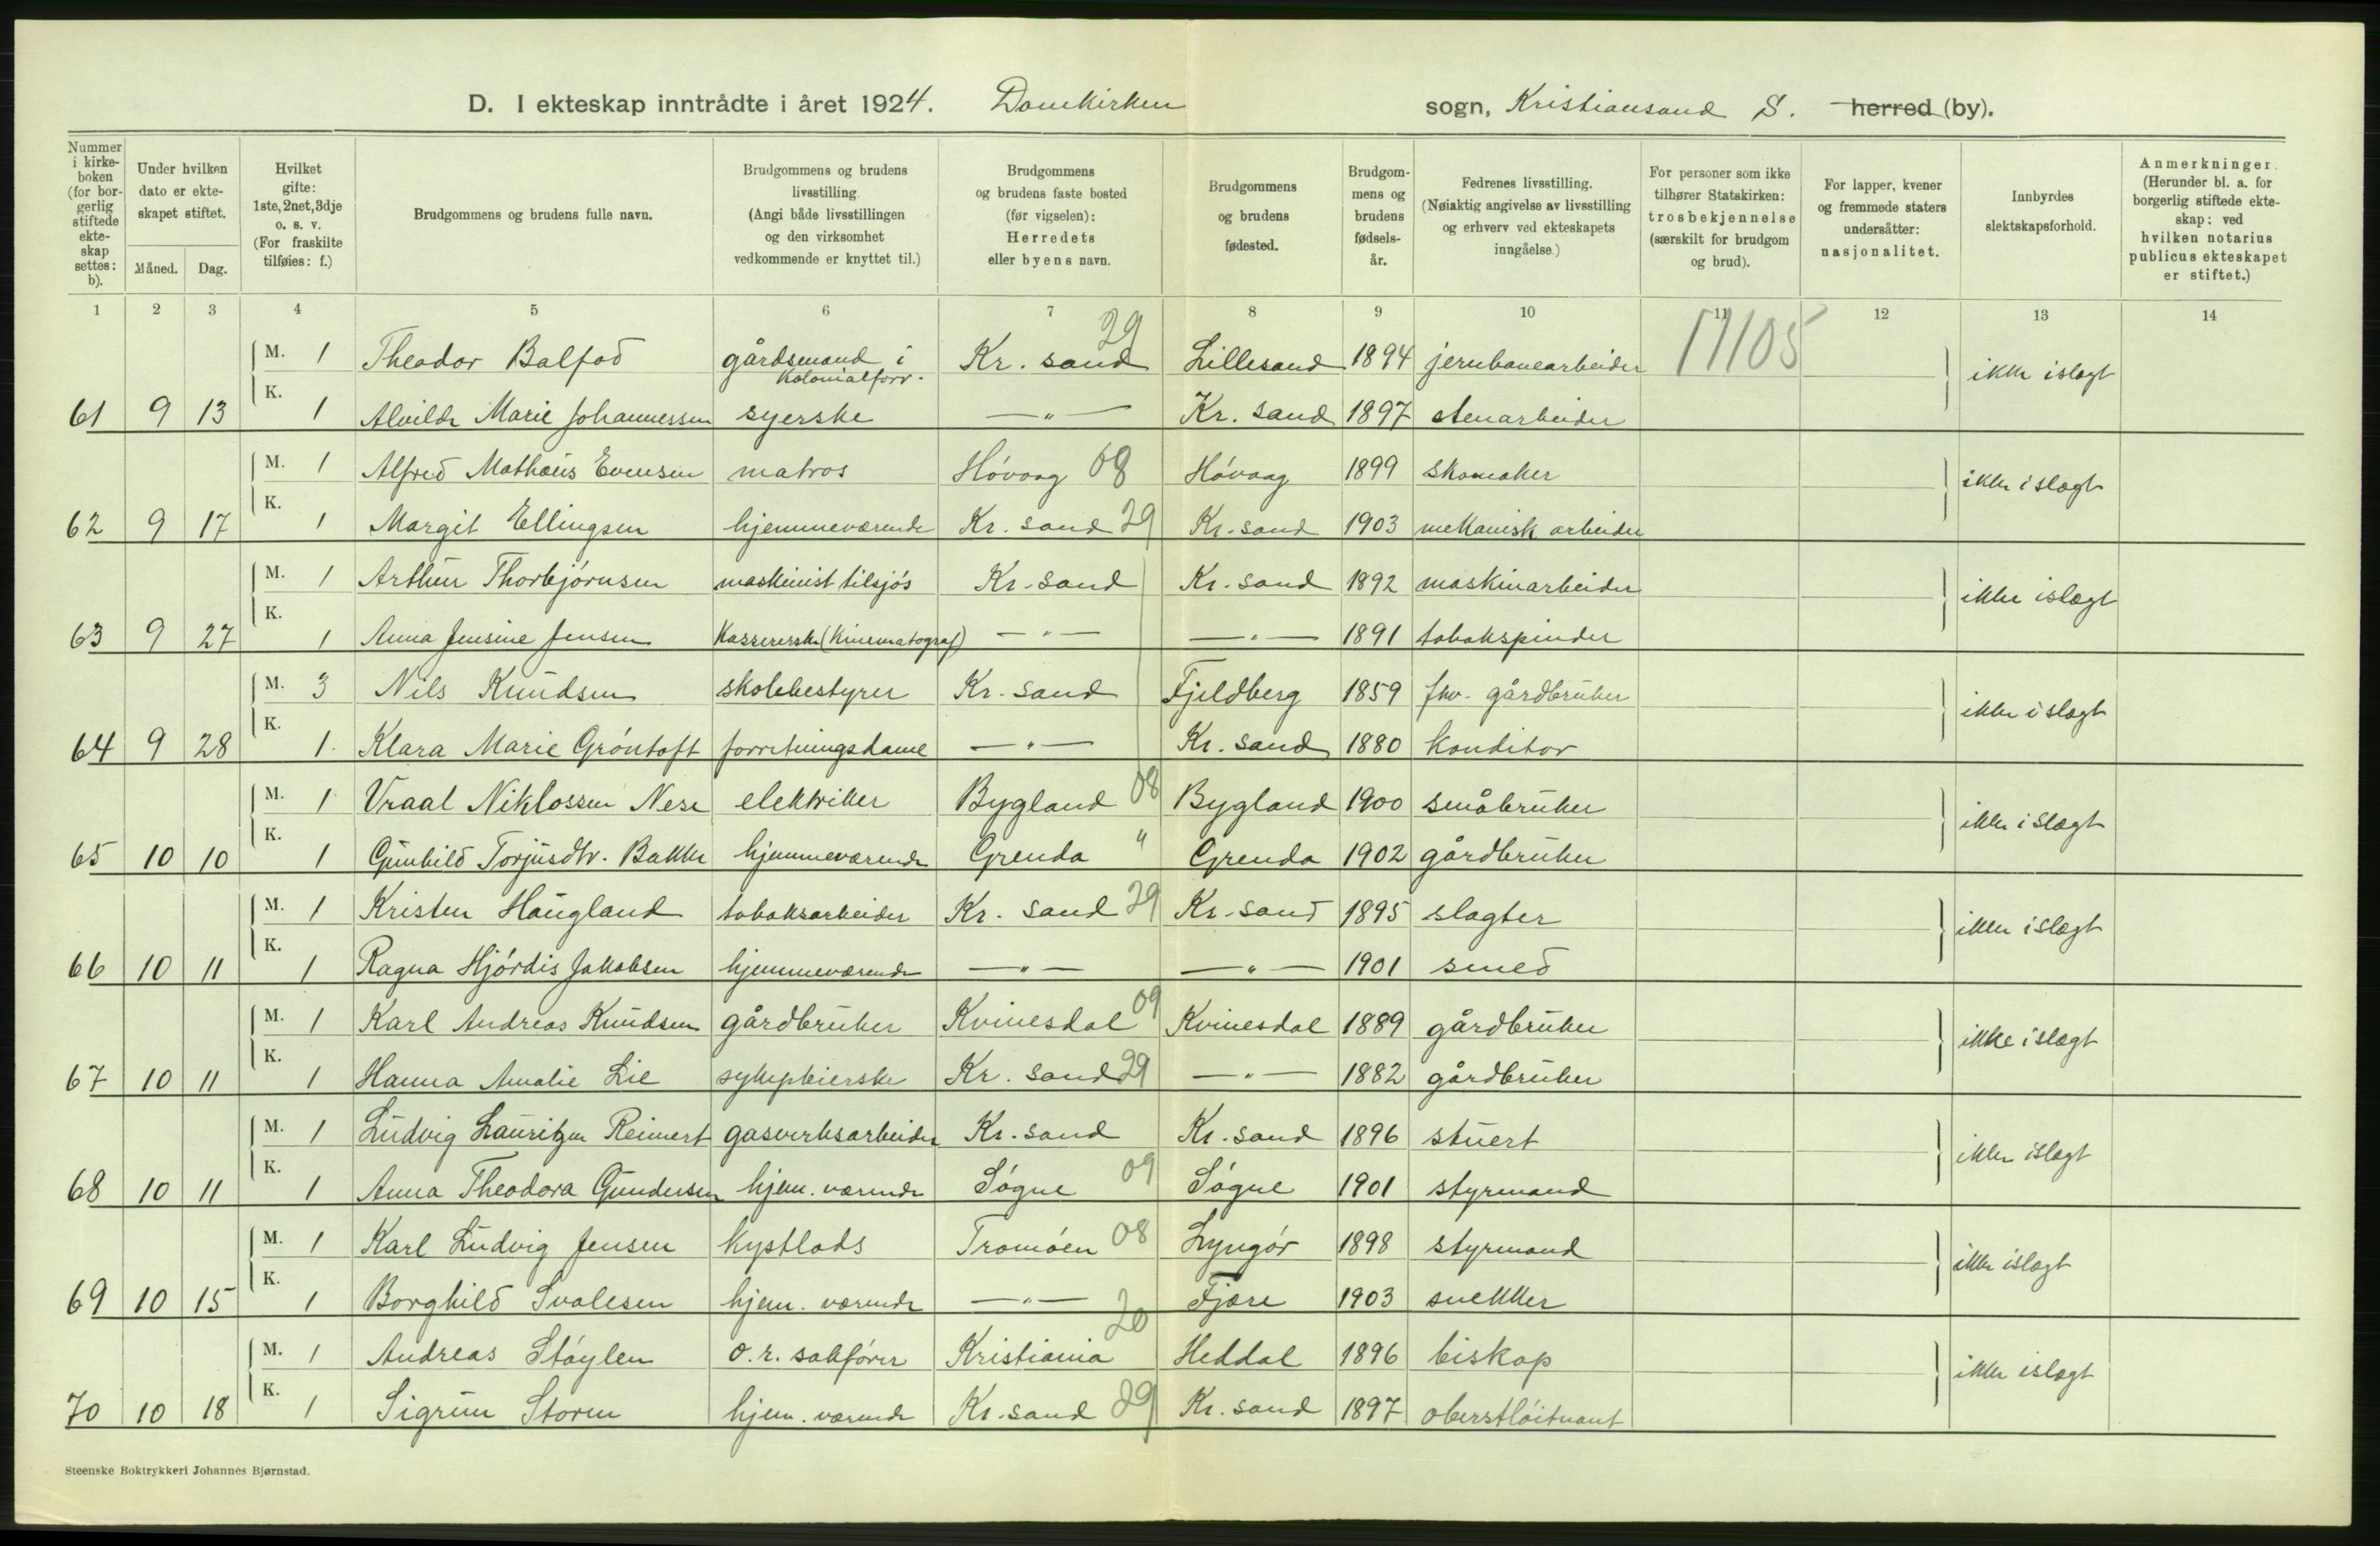 D. I ekteskap inntrådte i året 1924. Domkirken sogn, Kristiansand S. herred (by).
Nummer i kirkeboken (for borgerlig stiftede ekteskap settes: b).
Under hvilken dato er ekteskapet stiftet.
Måned. Dag.
Hvilket gifte: 1ste, 2net, 3dje o. s. v. (For fraskilte tilføies: f.)
Brudgommens og brudens fulle navn.
Brudgommens og brudens livsstilling. (Angi både livsstillingen og den virksomhet vedkommende er knyttet til.)
Brudgommens og brudens faste bosted (før vigselen): Herredets eller byens navn.
Brudgommens og brudens fødested.
Brudgommens og brudens fødselsår.
Fedrenes livsstilling. (Nøiaktig angivelse av livsstilling og erhverv ved ekteskapets inngåelse.)
For personer som ikke tilhører Statskirken: trosbekjennelse (særskilt for brudgom og brud).
For lapper, kvener og fremmede staters undersåtter: nasjonalitet.
Innbyrdes slektskapsforhold.
Anmerkninger. (Herunder bl. a. for borgerlig stiftede ekteskap: ved hvilken notarius publicus ekteskapet er stiftet.)
1 2 3 4 5 6 7 8 9 10 11 12 13 14
M. 1 Theodor Balfod gårdsmand i Kolonialforr. Kr. sand 29 Lillesand 1894 jernbanearbeider 17105 ikke islægt
61 9 13 K. 1 Alvilde Marie Johannessen syerske —"— Kr. sand 1897 stenarbeider
M. 1 Alfred Mathæus Evensen matros Høvaag 08 Høvaag 1899 skomaker ikke i slægt
62 9 17 K. 1 Margit Ellingsen hjemmeværende Kr. sand 29 Kr. sand 1903 mekanisk arbeider
M. 1 Arthur Thorbjørnsen maskinist tilsjøs Kr. sand Kr. sand 1892 maskinarbeider ikke islægt
63 9 27 K. 1 Anna Jensine Jensen Kassererske (Kinematograf) —"— —"— 1891 tobakspinder
M. 3 Nils Knudsen skolebestyrer Kr. sand Fjeldberg 1859 fhv. gårdbruker ikke i slægt
64 9 28 K. 1. Klara Marie Grøntoft forretningsdame —"— Kr. sand 1880 konditor
M. 1 Vraal Niklossen Nese elektriker Bygland 08 Bygland 1900 småbruker ikke i slægt
65 10 10 K. 1 Gunhild Torjusdtr. Bakke hjemmeværende Grenda " Grenda 1902 gårdbruker
M. 1 Kristen Haugland tobaksarbeider Kr. sand 29 Kr. sand 1895 slagter ikke i slægt
66 10 11 K. 1 Ragna Hjørdis Jakobsen hjemmeværende —"— —"— 1901 smed
M. 1 Karl Andreas Knudsen gårdbruker Kvinesdal 09 Kvinesdal 1889 gårdbruker ikke i slægt
67 10 11 K. 1 Hanna Amalie Lie sykepleierske Kr. sand 29 —"— 1882 gårdbruker
M. 1 Ludvig Lauritzen Reinert gasverksarbeider Kr. sand Kr. sand 1896 stuert ikke islægt
68 10 11 K. 1 Anna Theodora Gundersen hjem. værende Søgne 09 Søgne 1901 styrmand
M. 1 Karl Ludvig Jensen kystlods Tromøen 08 Lyngør 1898 styrmand ikke islægt
69 10 15 K. 1 Borghild Svalesen hjem. værende —"— Fjære 1903 snekker
M. 1 Andreas Støylen o.r. sakfører Kristiania 20 Heddal 1896 biskop ikke islægt
70 10 18 K. 1 Sigrun Storm hjem. værende Kr. sand 29 Kr. sand 1897 oberstløitnant
Steenske Boktrykkeri Johannes Bjørnstad.